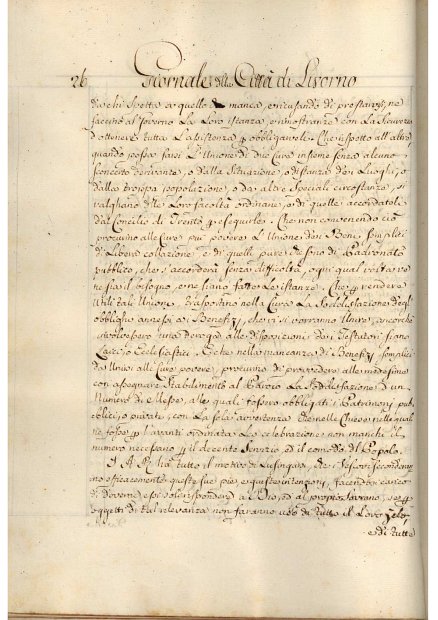 26 Giornale della Città di Livorno
da chi spetta a quello che manca, e ricusando di prestarvisi, ne
faccino al Governo le loro istanze, e rimostranze con la sicurezza
d'ottenere tutta l'assistenza per obbligarveli. Che rispetto all'altro,
quando possa farsi l'Unione di due Cure insieme senza alcuno
sconcerto derivante, o dalla situazione, o distanza dei Luoghi, o
dalla troppa popolazione, o da altre speciali circostanze, si
valghino delle loro facoltà ordinarie, o di quelle accordateli
dal Concilio di Trento per eseguirlo. Che non convenendo ciò
procurino alle Cure più povere l'Unione dei Beni semplici
di libera collazione, e di quelli pure che sono di Padronato
pubblico, che s'accorderà senza difficoltà, ogni qual volta ve
ne sia il bisogno, e ne siano fatte le istanze. Che per rendere
utili tale Unione, trasportino nella Cura la sodisfazione degl'
obblighi annessi ai Benefizj, che vi si vorranno unire, ancorchè
involvessero una deroga alle disposizioni dei Testatori siano
Laici, o Ecclesiastici. E che nella mancanza di Benefizj semplici
da unirsi alle Cure povere, procurino di provvedere alle medesime
con assegnare stabilmente al Paroco la sodisfazione di un
Numero di Messe, alle quali fossero obbligati i Patrimonj pub-
blici, o privati, con la sola avvertenza che nelle Chiese nelle quali
ne fosse per l'avanti ordinata la celebrazione non manchi il
numero necessario per il decente servizio ed il comodo del Popolo.
S. A. R. ha tutto il motivo di lusingarsi, che i Vescovi seconderan-
no efficacemente queste sue pie, e giuste intenzioni, facendosi carico
di doverne essi soli rispondere a Dio, ed al proprio Sovrano, se per
oggetti di tal rilevanza non faranno uso di tutto il loro zelo,
e di tutta